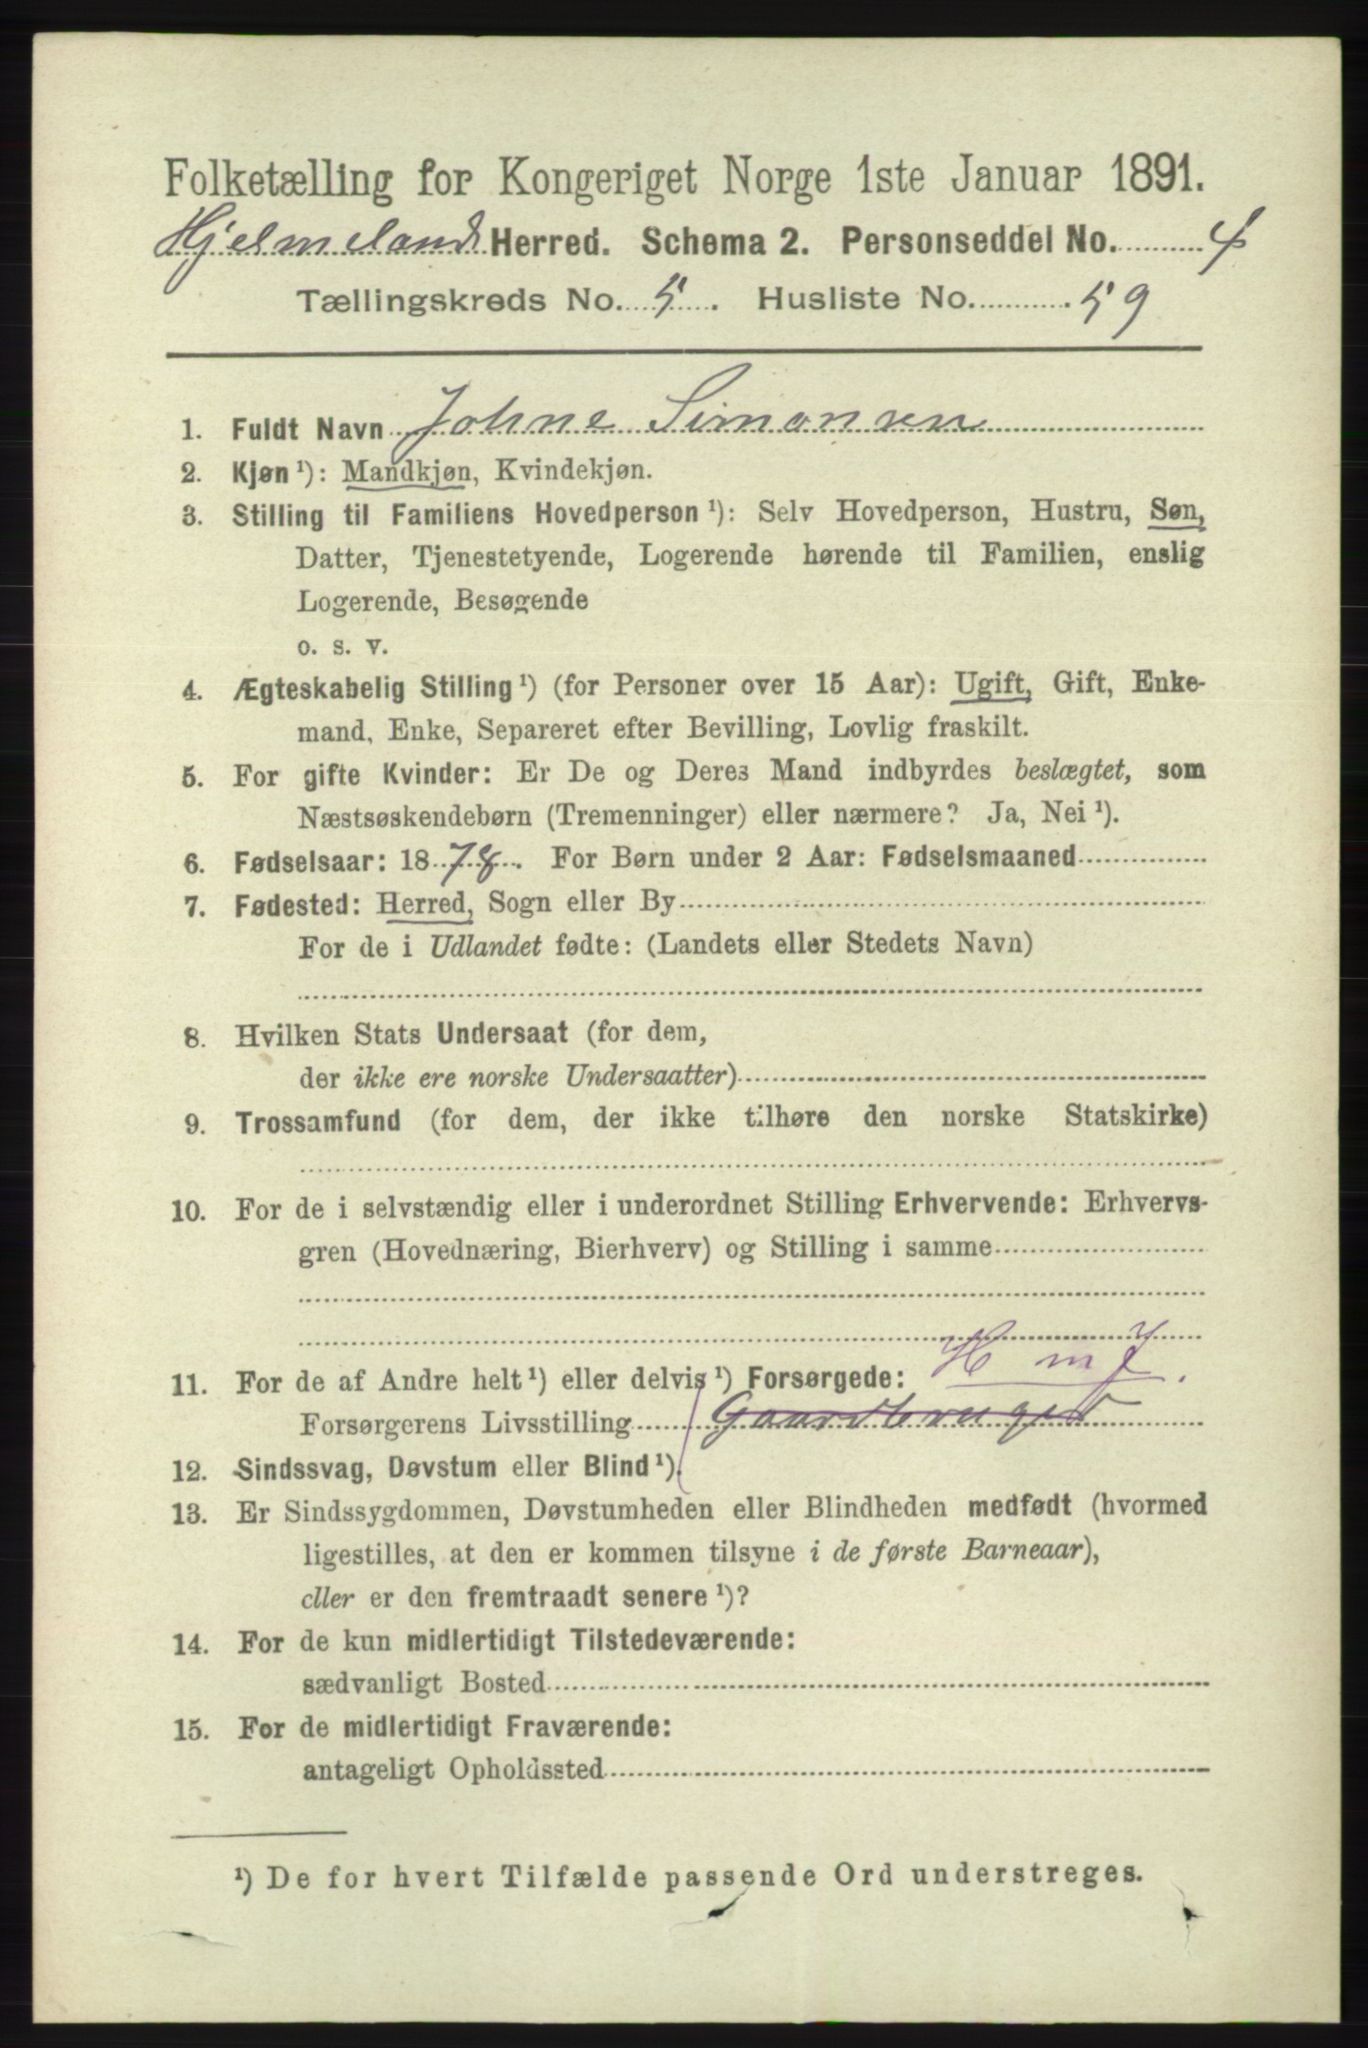 Folketælling for Kongeriget Norge 1ste Januar 1891.
Hjelmeland Herred. Schema 2. Personseddel No. 4
Tællingskreds No. 5. Husliste No. 59
1. Fuldt Navn Johne Simonsen
2. Kjøn ¹): Mandkjøn, Kvindekjøn.
3. Stilling til Familiens Hovedperson ¹): Selv Hovedperson, Hustru, Søn,
Datter, Tjenestetyende, Logerende hørende til Familien, enslig
Logerende, Besøgende
o. s. v.
4. Ægteskabelig Stilling ¹) (for Personer over 15 Aar): Ugift, Gift, Enke-
mand, Enke, Separeret efter Bevilling, Lovlig fraskilt.
5. For gifte Kvinder: Er De og Deres Mand indbyrdes beslægtet, som
Næstsøskendebørn (Tremenninger) eller nærmere? Ja, Nei ¹).
6. Fødselsaar: 1878. For Børn under 2 Aar: Fødselsmaaned
7. Fødested: Herred, Sogn eller By
For de i Udlandet fødte: (Landets eller Stedets Navn)
8. Hvilken Stats Undersaat (for dem,
der ikke ere norske Undersaatter)
9. Trossamfund (for dem, der ikke tilhøre den norske Statskirke)
10. For de i selvstændig eller i underordnet Stilling Erhvervende: Erhvervs-
gren (Hovednæring, Bierhverv) og Stilling i samme
11. For de af Andre helt ¹) eller delvis ¹) Forsørgede: H m J.
Forsørgerens Livsstilling Gaardbruger
12. Sindssvag, Døvstum eller Blind ¹).
13. Er Sindssygdommen, Døvstumheden eller Blindheden medfødt (hvormed
ligestilles, at den er kommen tilsyne i de første Barneaar),
eller er den fremtraadt senere ¹)?
14. For de kun midlertidigt Tilstedeværende:
sædvanligt Bosted
15. For de midlertidigt Fraværende:
antageligt Opholdssted
¹) De for hvert Tilfælde passende Ord understreges.